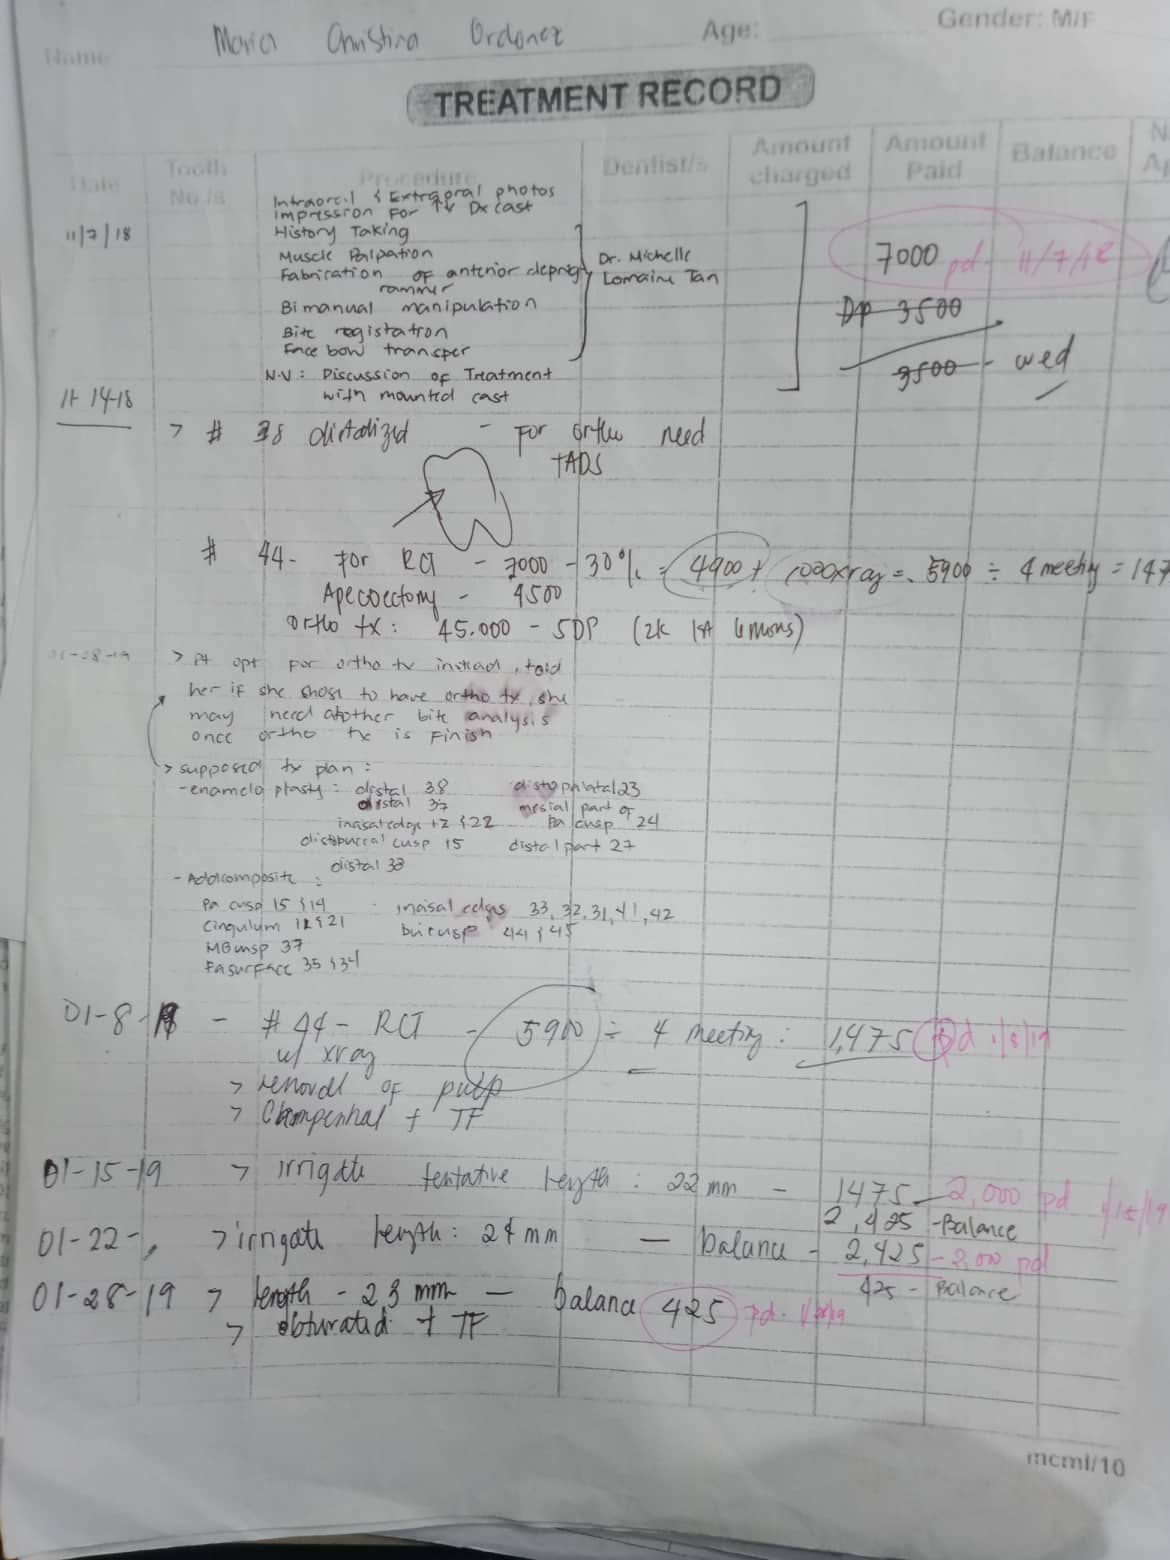 Name Maria Christina Ordonez Age: Gender: M/F
TREATMENT RECORD
Date Tooth No./s Procedure Dentist/s Amount charged Amount Paid Balance
Intraoral & Extraoral photos
Impression For Dx cast
11/7/18 History Taking 7000 pd 11/7/18
Muscle Palpation Dr. Michelle
Fabrication of anterior deprog Lorraine Tan
rammer
Bimanual manipulation DP 3500
Bite registration
Face bow transfer 3500 - wed
N.V: Discussion of Treatment
with mounted cast
11-14-18
> # 38 distalized - For ortho need
TADS
# 44 - For RCT - 7000 - 30% = 4900 + 1000 xray = 5900 ÷ 4 meeting = 147
Apecoectomy - 4500
Ortho tx: 45,000 - 5DP (2k 1st 6 mons)
01-28-19 > Pt opt for ortho tx instead, told
her if she chose to have ortho tx, she
may need another bite analysis
once ortho tx is Finish
> supposed tx plan:
- enamelo plasty: distal 38 distopalatal 23
distal 37 mesial part of
& 22 Pa cusp 24
distobuccal cusp 15 distal part 27
distal 33
- Add composite:
Pa cusp 15 & 14 - incisal edges 33, 32, 31, 41, 42
cingulum & 21 44 & 45
MB cusp 37
Fa surface 35 & 34
01-8-19 - # 44 - RCT - 5900 ÷ 4 meeting: 1,475 pd 1/8/19
w/ xray
> removal of pulp
> + TF
01-15-19 > irrigate tentative length: 22 mm - 1475 - 2,000 pd 1/15/19
2,425 - Balance
01-22- > irrigate length: 24 mm - balance - 2,425 - 2,000 pd
425 - Balance
01-28-19 > length - 23 mm - balance 425 pd.
> obturated + TF
mcml/10